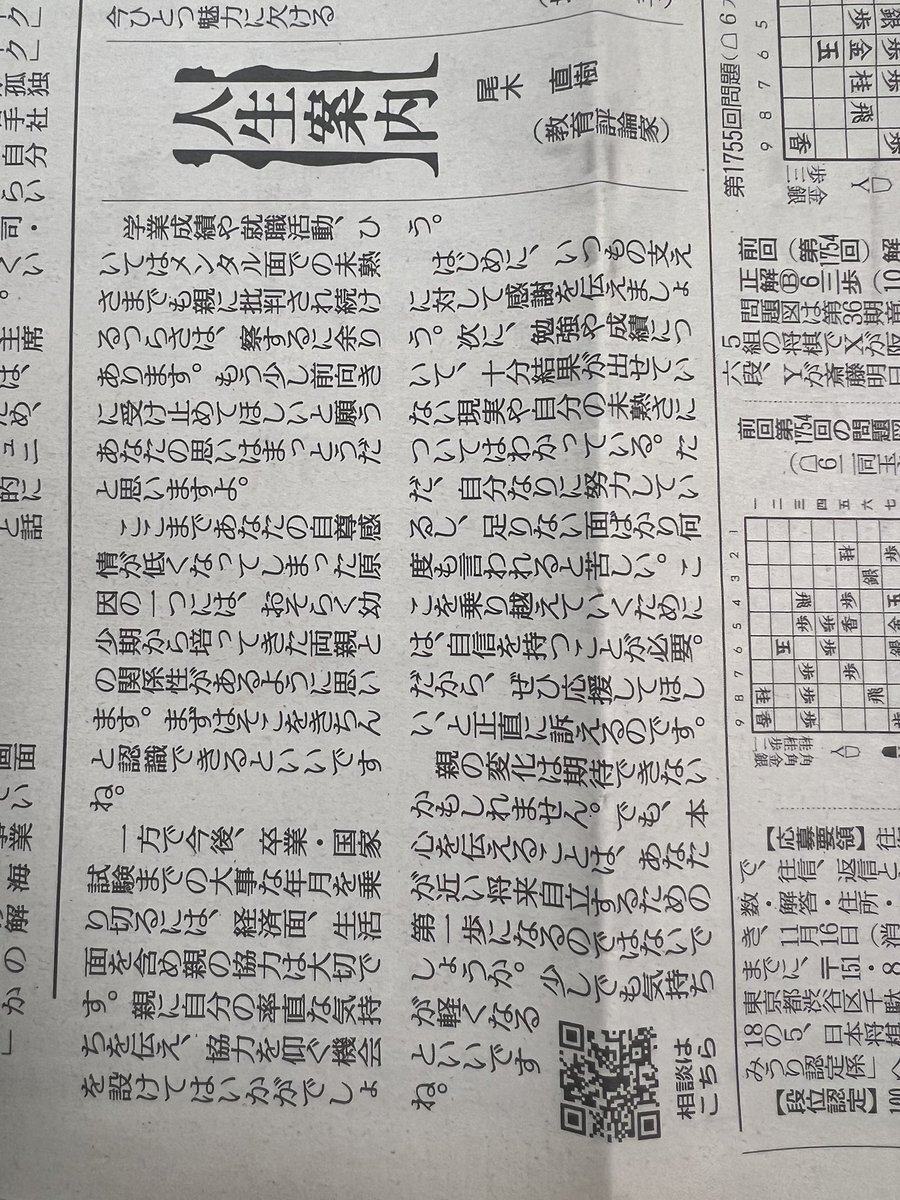 今ひとつ魅力に欠ける
人生案内
尾木 直樹
(教育評論家)
学業成績や就職活動、ひ
いてはメンタル面での未熟
さまでも親に批判され続け
るつらさは、察するに余り
あります。もう少し前向き
に受け止めてほしいと願う
あなたの思いはまっとうだ
と思いますよ。
ここまであなたの自尊感
情が低くなってしまった原
因の一つには、おそらく幼
少期から培ってきた両親と
の関係性があるように思い
ます。まずはそこをきちん
と認識できるといいです
ね。
一方で今後、卒業・国家
試験までの大事な年月を乗
り切るには、経済面、生活
面を含め親の協力は大切で
す。親に自分の率直な気持
ちを伝え、協力を仰ぐ機会
を設けてはいかがでしょ
う。
はじめに、いつもの支え
に対して感謝を伝えましょ
う。次に、勉強や成績につ
いて、十分結果が出せてい
ない現実や自分の未熟さに
ついてはわかっている。た
だ、自分なりに努力してい
るし、足りない面ばかり何
度も言われると苦しい。こ
こを乗り越えていくために
は、自信を持つことが必要。
だから、ぜひ応援してほし
い、と正直に訴えるのです。
親の変化は期待できない
かもしれません。でも、本
心を伝えることは、あなた
が近い将来自立するための
第一歩になるのではないで
しょうか。少しでも気持ち
が軽くなる
といいです
ね。
相談は
こちら
第1755回問題
前回(第1754回)解
正解Ⓑ6三歩(10
問題図は第36期竜
5組の将棋でXが阪
六段、Yが斎藤明日
前回第1754回の問題図
【応募要領】往
で、往信、返信と
数・解答・住所・
き、11月16日(消
までに、〒151・8
東京都渋谷区千駄
18の5、日本将棋
みうり認定係」へ
【段位認定】100